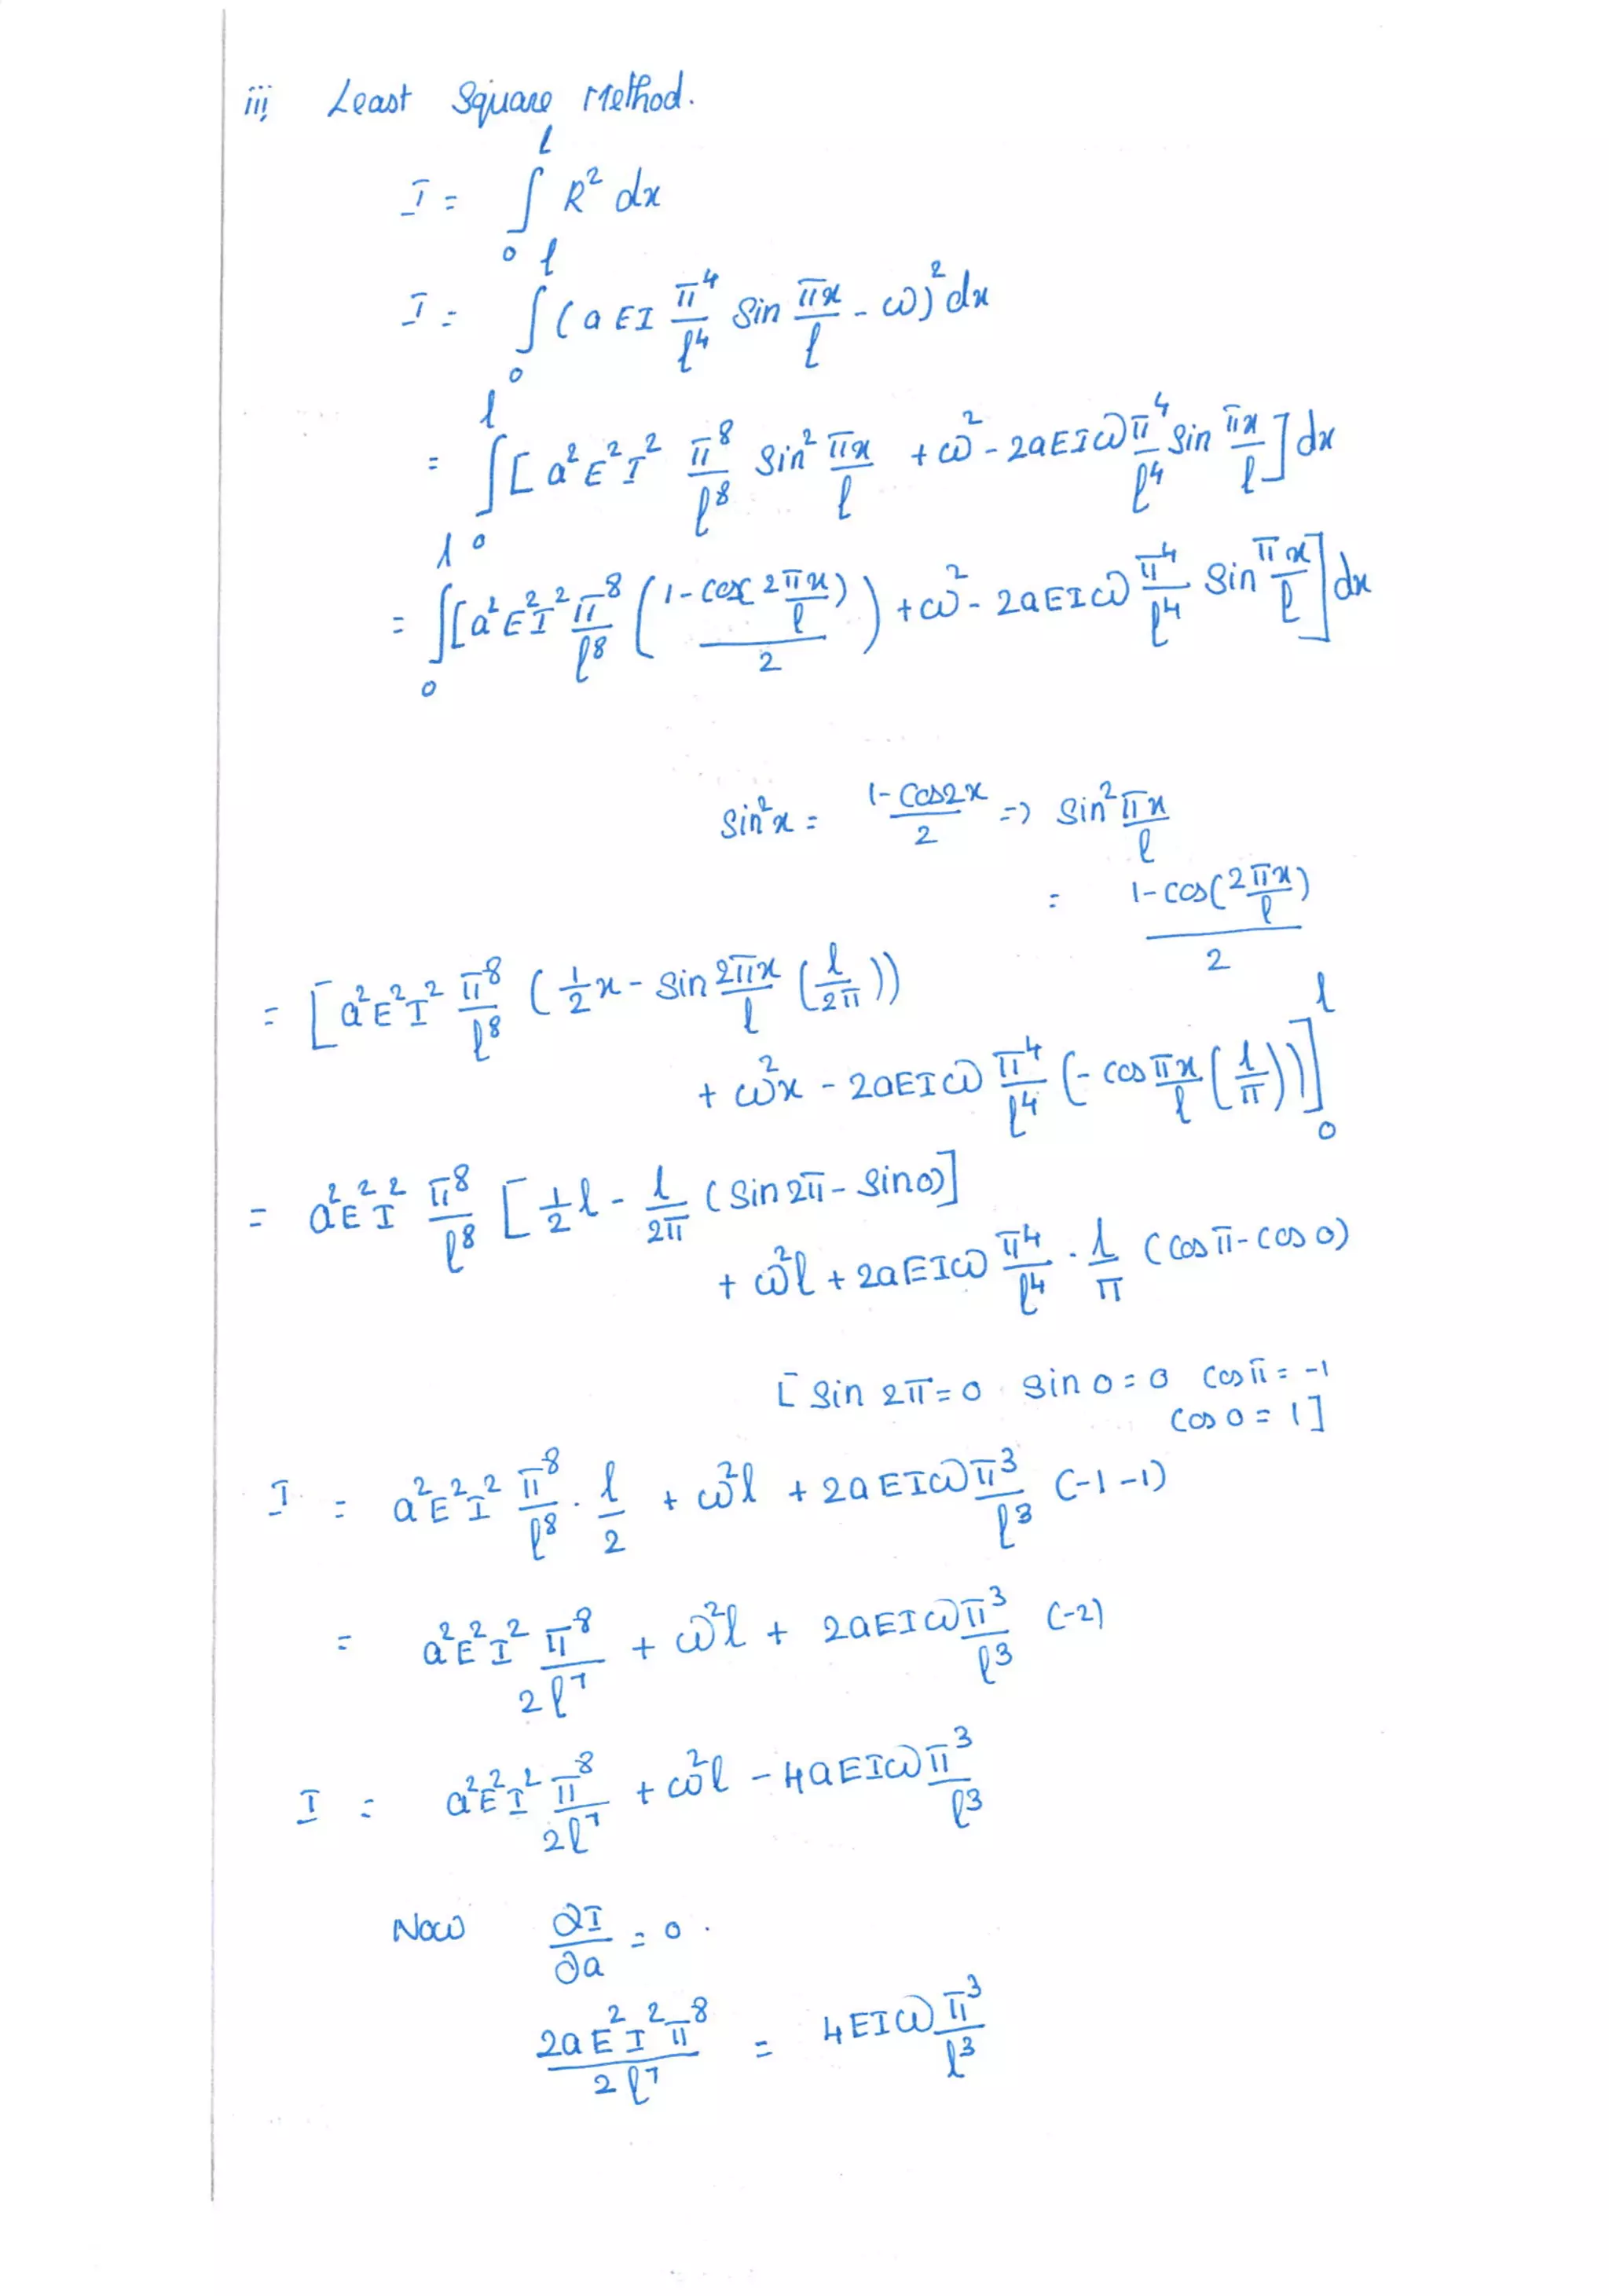 iii, Least Square Method.
I = ∫₀ˡ R² dx
I = ∫₀ˡ (a EI π⁴/l⁴ Sin πx/l - ω)² dx
= ∫₀ˡ [a²E²I² π⁸/l⁸ Sin² πx/l + ω² - 2aEIω π⁴/l⁴ Sin πx/l] dx
= ∫₀ˡ [a²E²I² π⁸/l⁸ ((1 - cos 2πx/l)/2) + ω² - 2aEIω π⁴/l⁴ Sin πx/l] dx
Sin²x = (1 - Cos2x)/2 => Sin² πx/l
= (1 - cos(2πx/l))/2
= [a²E²I² π⁸/l⁸ (1/2 x - Sin 2πx/l (l/2π))
+ ω²x - 2aEIω π⁴/l⁴ (- cos πx/l (l/π))]₀ˡ
= a²E²I² π⁸/l⁸ [1/2 l - l/2π (Sin 2π - Sin 0)]
+ ω²l + 2aEIω π⁴/l⁴ · l/π (Cos π - Cos 0)
[Sin 2π = 0 Sin 0 = 0 Cos π = -1
Cos 0 = 1]
I = a²E²I² π⁸/l⁸ · l/2 + ω²l + 2aEIω π³/l³ (-1-1)
= a²E²I² π⁸/2l⁷ + ω²l + 2aEIω π³/l³ (-2)
I = a²E²I² π⁸/2l⁷ + ω²l - 4aEIω π³/l³
Now ∂I/∂a = 0.
2aE²I²π⁸/2l⁷ = 4EIω π³/l³